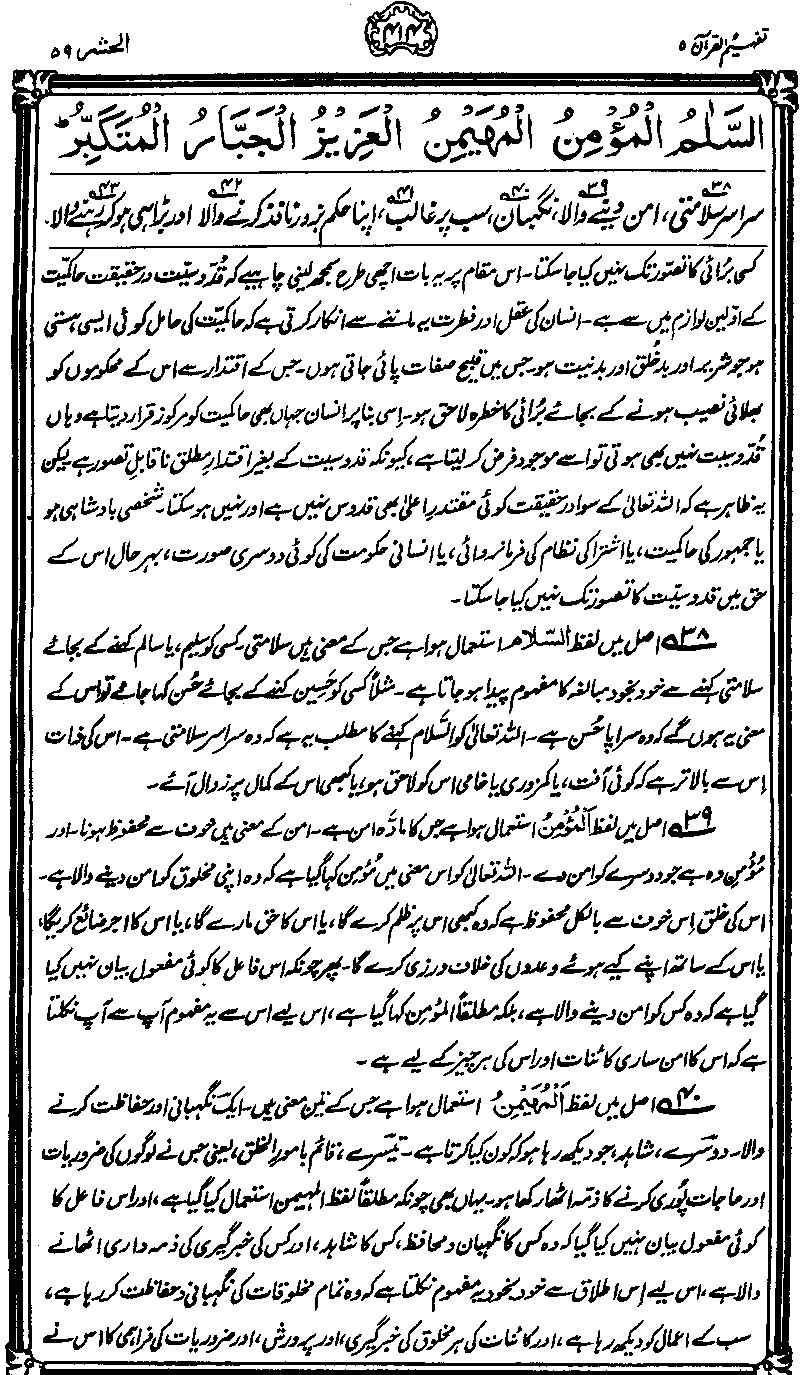 تفہیم القرآن ۵
۴۱۴
الحشر ۵۹
السَّلٰمُ الْمُؤْمِنُ الْمُهَيْمِنُ الْعَزِيْزُ الْجَبَّارُ الْمُتَكَبِّرُ ؕ
سراسر سلامتی۳۸، امن دینے والا۳۹، نگہبان۴۰، سب پر غالب۴۱، اپنا حکم بزور نافذ کرنے والا۴۲ اور بڑا ہی ہو کر رہنے والا۴۳۔
کسی بُرائی کا تصور تک نہیں کیا جا سکتا۔ اس مقام پر یہ بات اچھی طرح سمجھ لینی چاہیے کہ قُدّوسیّت درحقیقت حاکمیّت
کے اوّلین لوازم میں سے ہے۔ انسان کی عقل اور فطرت یہ ماننے سے انکار کرتی ہے کہ حاکمیّت کی حامل کوئی ایسی ہستی
ہو جو شریر اور بدخُلق اور بدنیت ہو۔ جس میں قبیح صفات پائی جاتی ہوں۔ جس کے اقتدار سے اس کے محکوموں کو
بھلائی نصیب ہونے کے بجائے بُرائی کا خطرہ لاحق ہو۔ اِسی بنا پر انسان جہاں بھی حاکمیت کو مرکوز قرار دیتا ہے وہاں
قُدّوسیت نہیں بھی ہوتی تو اسے موجود فرض کر لیتا ہے، کیونکہ قدوسیت کے بغیر اقتدارِ مطلق ناقابلِ تصور ہے لیکن
یہ ظاہر ہے کہ اللہ تعالیٰ کے سوا درحقیقت کوئی مقتدرِ اعلیٰ بھی قدوس نہیں ہے اور نہیں ہو سکتا۔ شخصی بادشاہی ہو
یا جمہور کی حاکمیت، یا اشتراکی نظام کی فرمانروائی، یا انسانی حکومت کی کوئی دوسری صورت، بہرحال اس کے
حق میں قدوسیّت کا تصور تک نہیں کیا جا سکتا۔
۳۸ اصل میں لفظ السَّلام استعمال ہوا ہے جس کے معنی ہیں سلامتی۔ کسی کو سلیم، یا سالم کہنے کے بجائے
سلامتی کہنے سے خود بخود مبالغہ کا مفہوم پیدا ہو جاتا ہے۔ مثلاً کسی کو حَسِین کہنے کے بجائے حُسن کہا جائے تو اس کے
معنی یہ ہوں گے کہ وہ سراپا حُسن ہے۔ اللہ تعالیٰ کو السَّلام کہنے کا مطلب یہ ہے کہ وہ سراسر سلامتی ہے۔ اس کی ذات
اِس سے بالاتر ہے کہ کوئی آفت، یا کمزوری یا خامی اس کو لاحق ہو، یا کبھی اس کے کمال پر زوال آئے۔
۳۹ اصل میں لفظ اَلْمُؤْمِنُ استعمال ہوا ہے جس کا مادّہ امن ہے۔ امن کے معنی ہیں خوف سے محفوظ ہونا۔ اور
مُؤمِن وہ ہے جو دوسرے کو امن دے۔ اللہ تعالیٰ کو اس معنی میں مُؤمن کہا گیا ہے کہ وہ اپنی مخلوق کو امن دینے والا ہے۔
اس کی خلق اِس خوف سے بالکل محفوظ ہے کہ وہ کبھی اس پر ظلم کرے گا، یا اس کا حق مارے گا، یا اس کا اجر ضائع کریگا،
یا اس کے ساتھ اپنے کیے ہوئے وعدوں کی خلاف ورزی کرے گا۔ پھر چونکہ اس فاعل کا کوئی مفعول بیان نہیں کیا
گیا ہے کہ وہ کس کو امن دینے والا ہے، بلکہ مطلقاً المؤمن کہا گیا ہے، اس لیے اس سے یہ مفہوم آپ سے آپ نکلتا
ہے کہ اس کا امن ساری کائنات اور اس کی ہر چیز کے لیے ہے۔
۴۰ اصل میں لفظ اَلْمُهَيْمِنُ استعمال ہوا ہے جس کے تین معنی ہیں۔ ایک نگہبانی اور حفاظت کرنے
والا۔ دوسرے، شاہد، جو دیکھ رہا ہو کہ کون کیا کرتا ہے۔ تیسرے، قائم بامور الخلق، یعنی جس نے لوگوں کی ضروریات
اور حاجات پوری کرنے کا ذمہ اٹھا رکھا ہو۔ یہاں بھی چونکہ مطلقاً لفظ المہیمن استعمال کیا گیا ہے، اور اس فاعل کا
کوئی مفعول بیان نہیں کیا گیا کہ وہ کس کا نگہبان و محافظ، کس کا شاہد، اور کس کی خبر گیری کی ذمہ داری اٹھانے
والا ہے، اس لیے اِس اطلاق سے خود بخود یہ مفہوم نکلتا ہے کہ وہ تمام مخلوقات کی نگہبانی و حفاظت کر رہا ہے،
سب کے اعمال کو دیکھ رہا ہے، اور کائنات کی ہر مخلوق کی خبر گیری، اور پرورش، اور ضروریات کی فراہمی کا اس نے